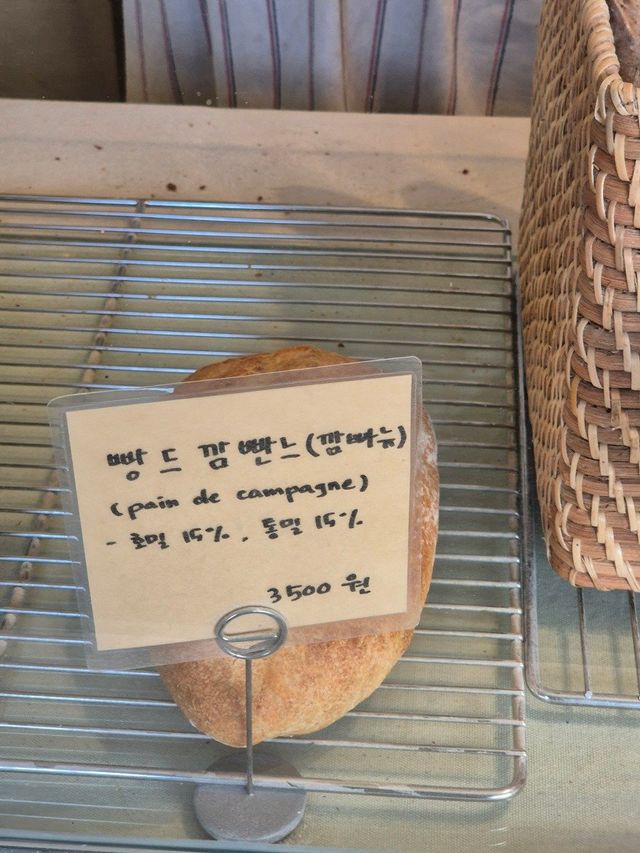 빵 드 깜빤느(깜빠뉴)
(pain de campagne)
- 호밀 15%, 통밀 15%
3500 원